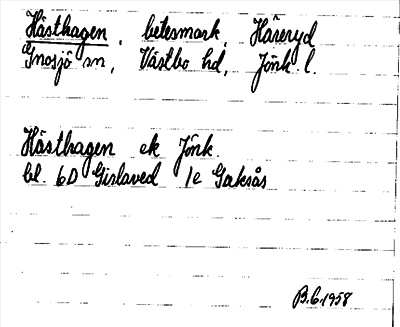 Hästhagen, betesmark, Häreryd
Gnosjö sn, Västbo hd, Jönk l.
Hästhagen ek Jönk.
bl. 6D Gislaved 1e Gaksås
B.G. 1958